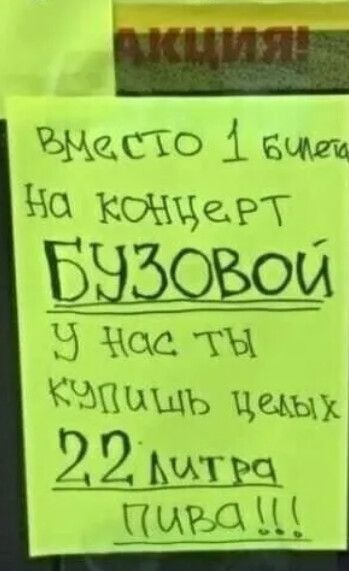 АКЦИЯ!
Вместо 1 билета
на концерт
БУЗОВОЙ
у нас ты
купишь целых
22 литра
пива!!!